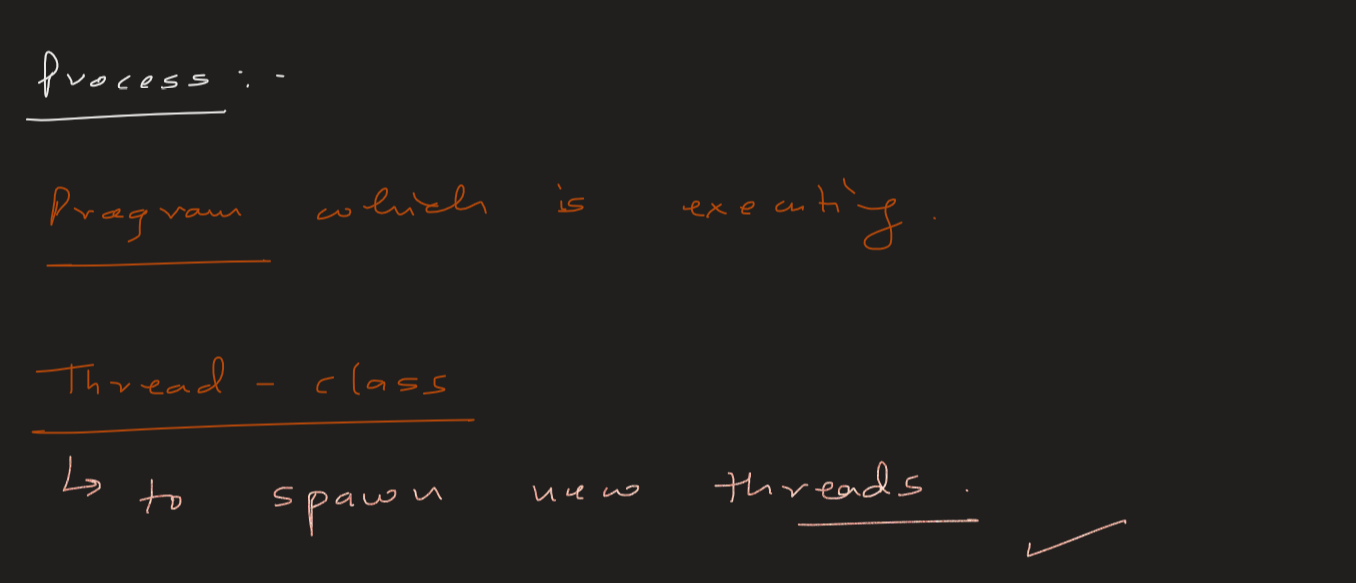 Process :-
Program which is executing.
Thread - class
↳ to spawn new threads.